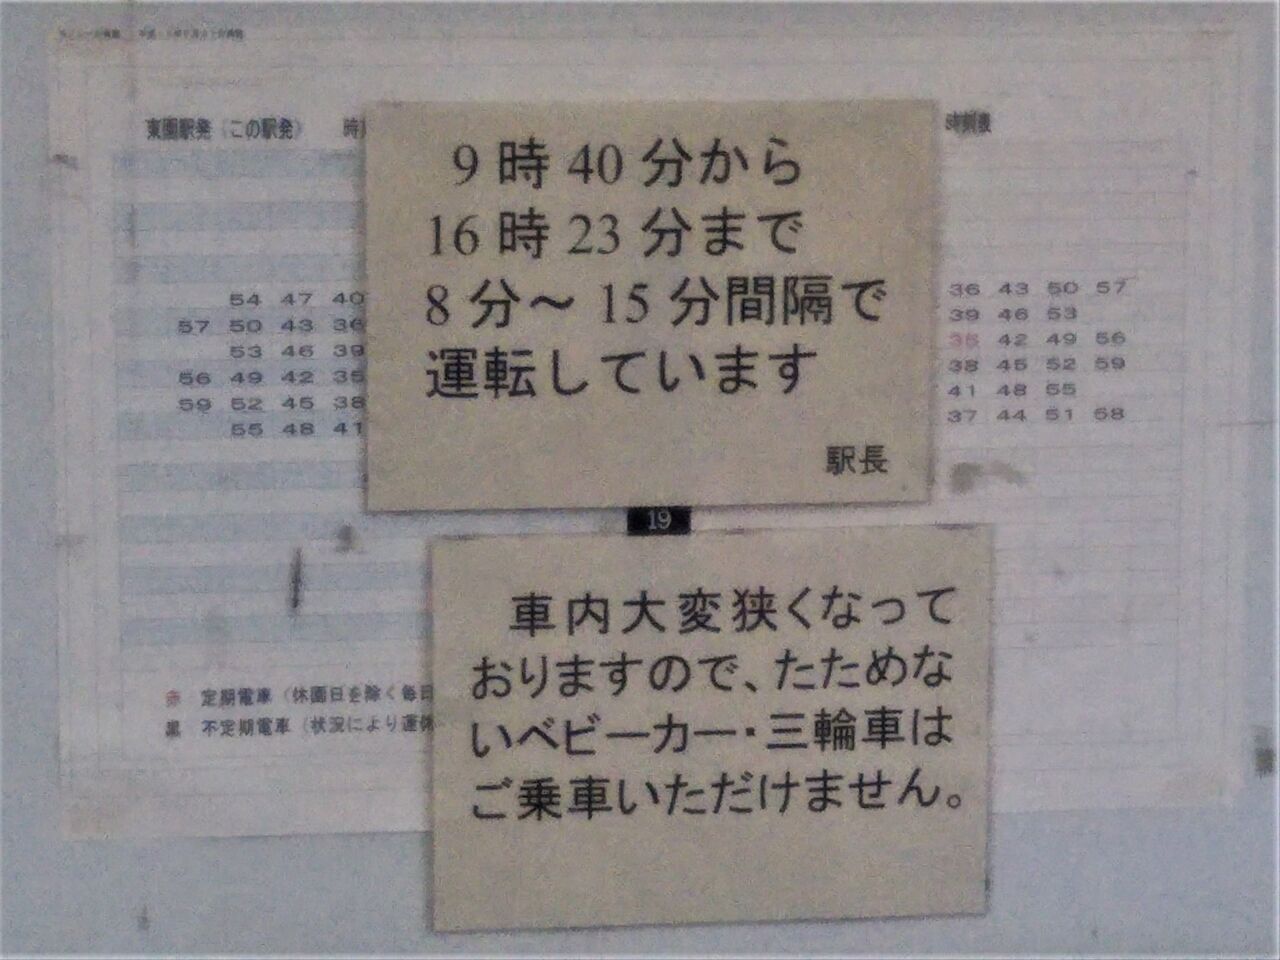 東園駅発（この駅発） 時
時刻表
9時40分から
16時23分まで
8分～15分間隔で
運転しています
駅長
54 47 40
57 50 43 36
53 46 39
56 49 42 35
59 52 45 38
55 48 41
36 43 50 57
39 46 53
35 42 49 56
38 45 52 59
41 48 55
37 44 51 58
19
車内大変狭くなって
おりますので、たためな
いベビーカー・三輪車は
ご乗車いただけません。
赤 定期電車（休園日を除く毎日
黒 不定期電車（状況により運休